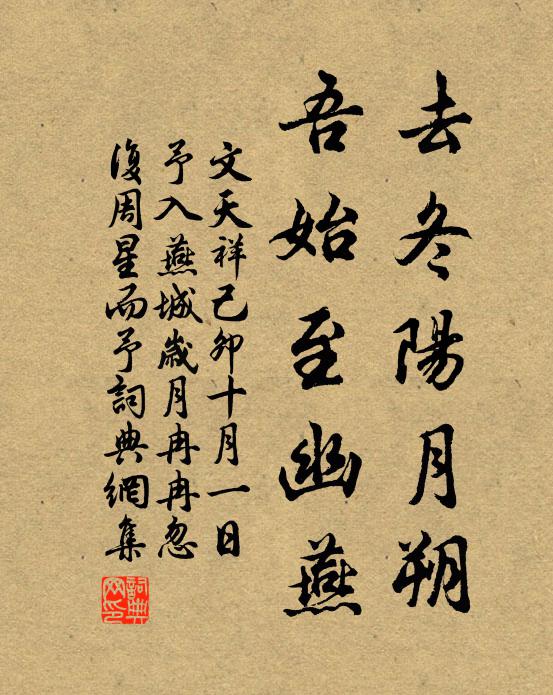 去冬陽月朔
吾始至幽燕
文天祥己卯十月一日
予入燕城歲月冉冉忽
復周星而予詞典網集
詞典网印